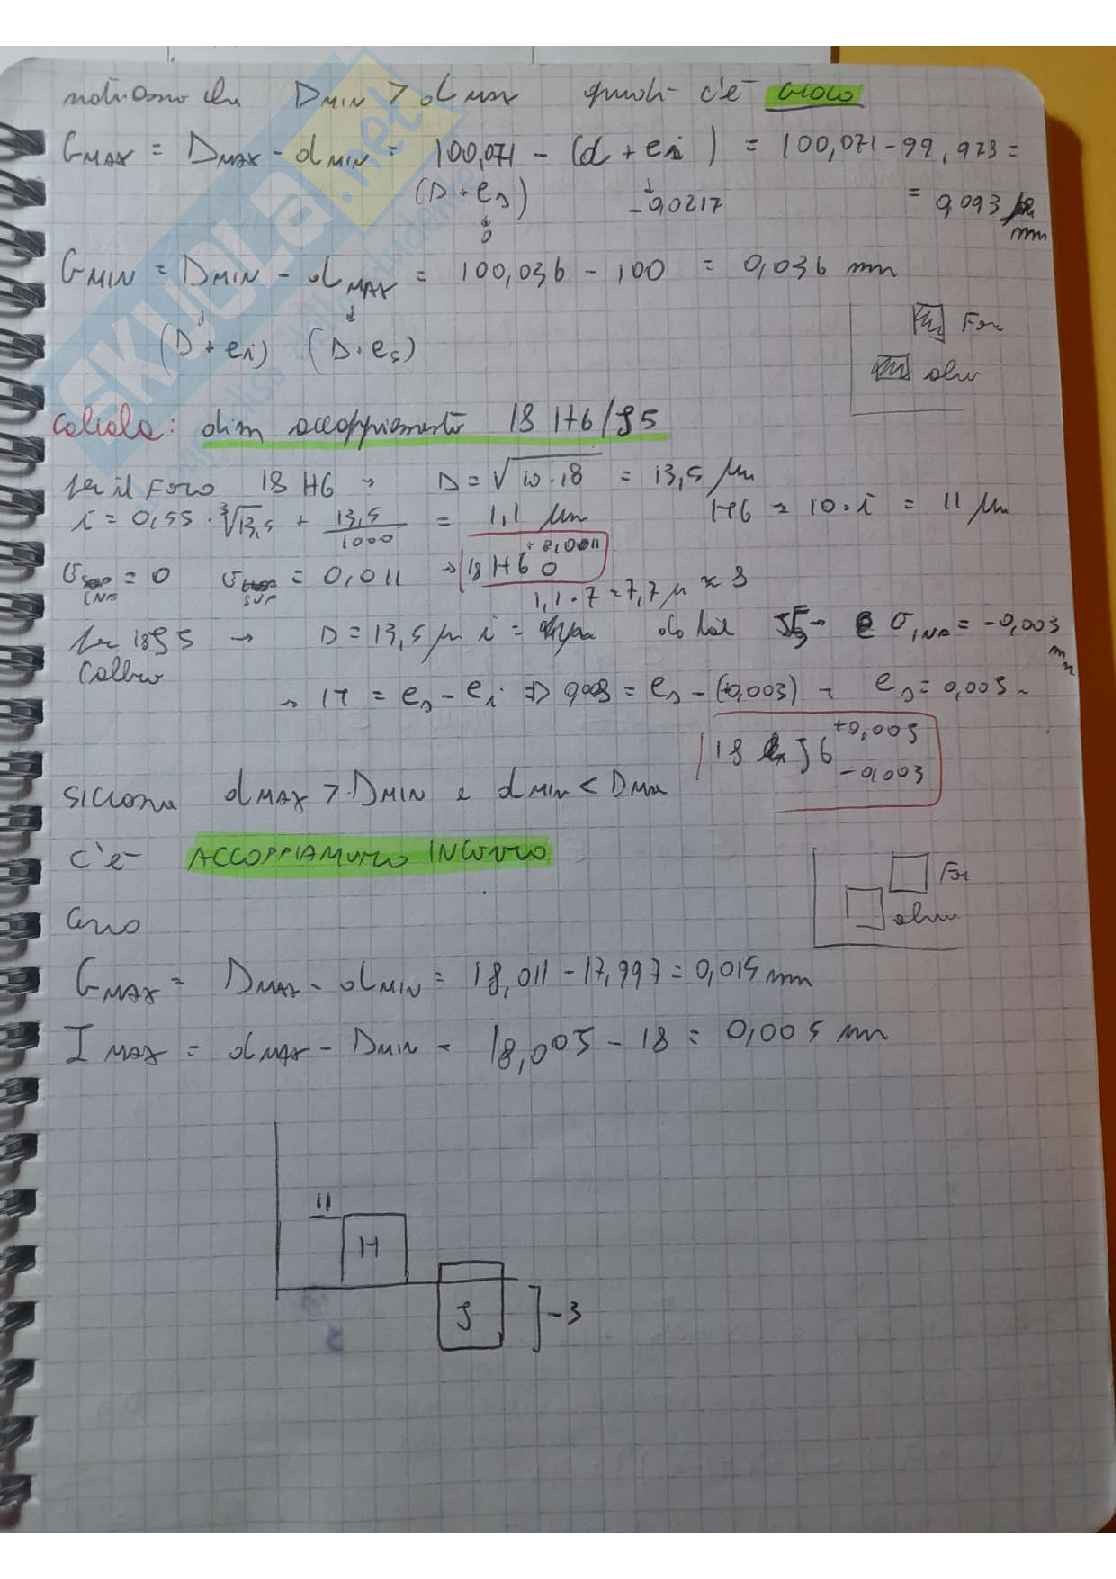 notiamo che D MIN > d MAX quindi c'è GIOCO
G MAX = D MAX - d MIN = 100,071 - (d + ei) = 100,071 - 99,973 =
(D + es) -0,0217 = 0,093 mm
0
G MIN = D MIN - d MAX = 100,036 - 100 = 0,036 mm
(D + ei) (D + es)
Foro
albero
Calcola: dim accoppiamento 18 H6/j5
per il FORO 18 H6 → D = √10·18 = 13,5 μm
i = 0,55 · ∛13,5 + 13,5/1000 = 1,1 μm H6 = 10·i = 11 μm
σ INF = 0 σ SUP = 0,011 → 18 H6 +0,011 0
1,1·7 = 7,7 μ ≈ 8
per 18j5 → D = 13,5 μm i = da tab j5 → σ INF = -0,003 mm
albero
→ IT = es - ei => 0,008 = es - (-0,003) → es = 0,005
18 j6 +0,005 -0,003
siccome d MAX > D MIN e d MIN < D MAX
c'è ACCOPPIAMENTO INCERTO
Foro
albero
G MAX = D MAX - d MIN = 18,011 - 17,997 = 0,014 mm
I MAX = d MAX - D MIN = 18,005 - 18 = 0,005 mm
11
H
J
-3
SKUOLA.net